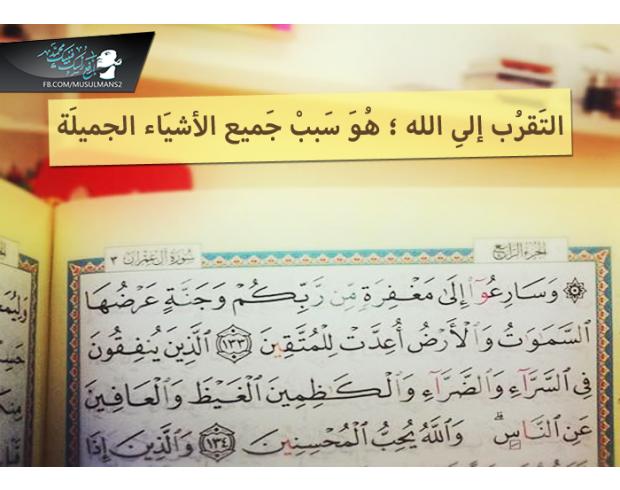 FB.COM/MUSULMANS2
التَقرُب إلىِ الله ؛ هُوَ سَببْ جَميع الأشيَاء الجميلَة
الجزء الرابع
سورة آل عمران ٣
۞ وَسَارِعُوٓا۟ إِلَىٰ مَغْفِرَةٍ مِّن رَّبِّكُمْ وَجَنَّةٍ عَرْضُهَا
ٱلسَّمَٰوَٰتُ وَٱلْأَرْضُ أُعِدَّتْ لِلْمُتَّقِينَ ١٣٣ ٱلَّذِينَ يُنفِقُونَ
فِى ٱلسَّرَّآءِ وَٱلضَّرَّآءِ وَٱلْكَٰظِمِينَ ٱلْغَيْظَ وَٱلْعَافِينَ
عَنِ ٱلنَّاسِ ۗ وَٱللَّهُ يُحِبُّ ٱلْمُحْسِنِينَ ١٣٤ وَٱلَّذِينَ إِذَا